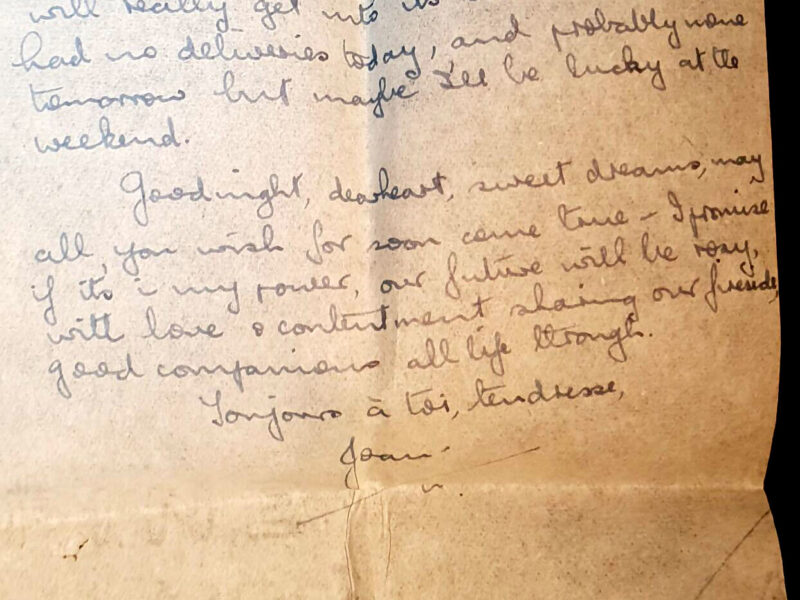 will really get into its
had no deliveries today, and probably none
tomorrow but maybe I'll be lucky at the
weekend.
Goodnight, dearheart, sweet dreams, may
all you wish for soon come true - I promise
if its i my power, our future will be rosy,
with love & contentment sharing our fireside,
good companions all life through.
Toujours à toi, tendresse,
Joan.